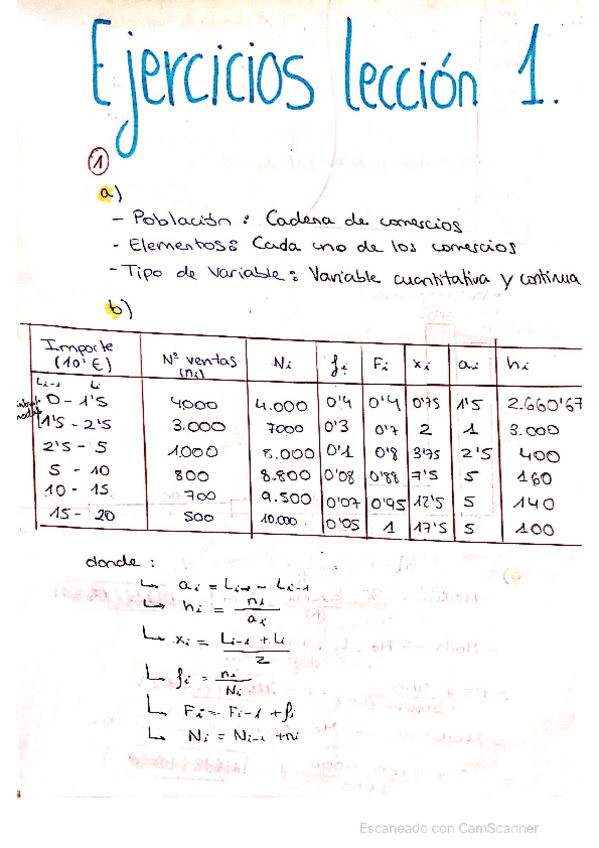 Ejercicios lección 1.
1
a)
- Población : Cadena de comercios
- Elementos: Cada uno de los comercios
- Tipo de Variable : Variable cuantitativa y continua
b)
Importe (10³ €) Nº ventas (ni) Ni fi Fi xi ai hi
Li-1 Li
0 - 1'5 4000 4.000 0'4 0'4 0'75 1'5 2.660'67
1'5 - 2'5 3.000 7000 0'3 0'7 2 1 3.000
2'5 - 5 1.000 8.000 0'1 0'8 3'75 2'5 400
5 - 10 800 8.800 0'08 0'88 7'5 5 160
10 - 15 700 9.500 0'07 0'95 12'5 5 140
15 - 20 500 10.000 0'05 1 17'5 5 100
donde :
↳ ai = Li - Li-1
↳ hi = ni / ai
↳ xi = Li-1 + Li / 2
↳ fi = ni / Ni
↳ Fi = Fi-1 + fi
↳ Ni = Ni-1 + ni
Escaneado con CamScanner